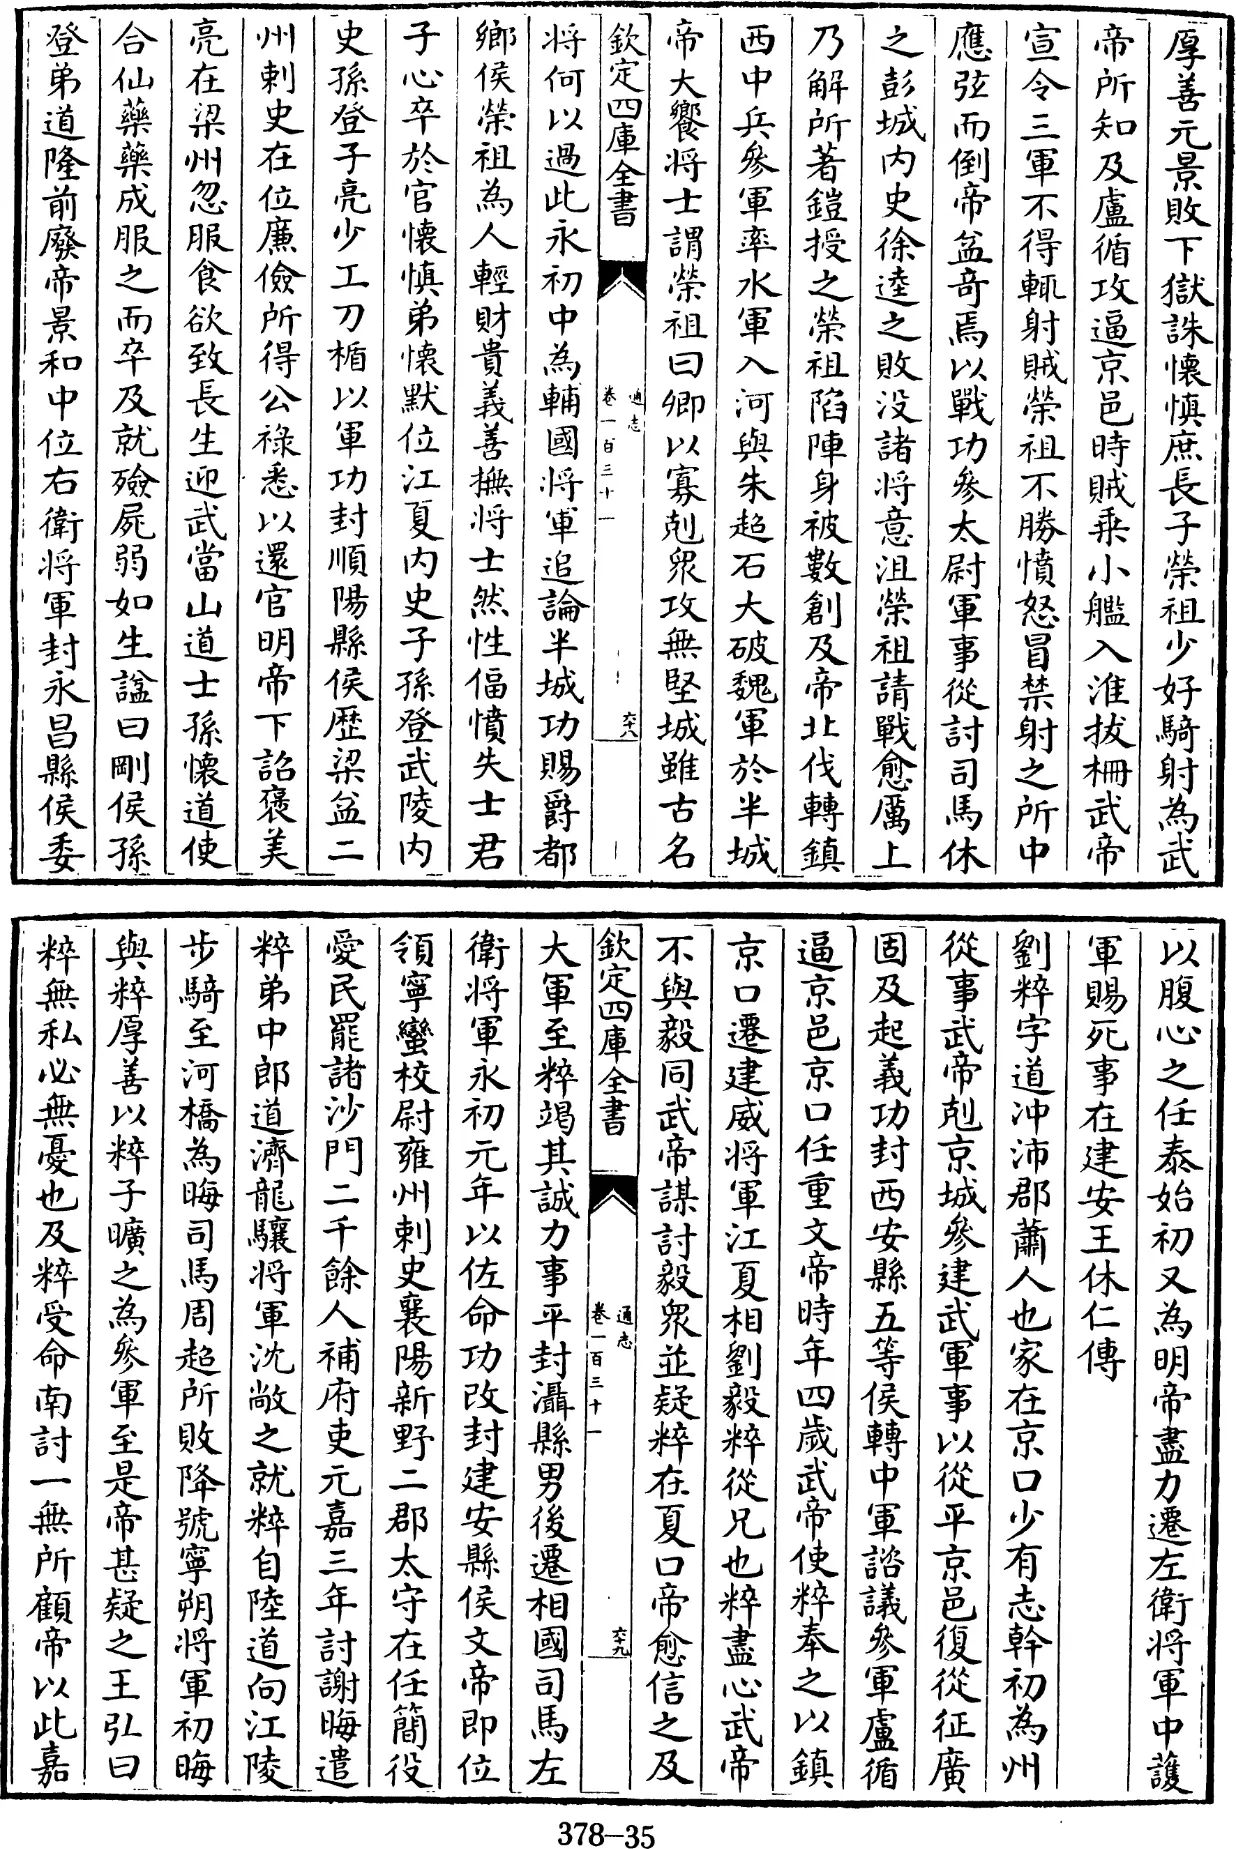 厚善元景敗下獄誅懷慎庶長子榮祖少好騎射為武
帝所知及盧循攻逼京邑時賊乗小艦入淮拔柵武帝
宣令三軍不得輒射賊榮祖不勝憤怒冒禁射之所中
應弦而倒帝益奇焉以戰功參太尉軍事從討司馬休
之彭城内史徐逵之敗没諸將意沮榮祖請戰愈厲上
乃解所著鎧授之榮祖陷陣身被數創及帝北伐轉鎮
西中兵參軍率水軍入河與朱超石大破魏軍於半城
帝大饗將士謂榮祖曰卿以寡剋衆攻無堅城雖古名
欽定四庫全書
通志
卷一百三十一
六十八
將何以過此永初中為輔國將軍追論半城功賜爵都
鄉侯榮祖為人輕財貴義善撫將士然性偪憤失士君
子心卒於官懷慎弟懷默位江夏内史子孫登武陵内
史孫登子亮少工刀楯以軍功封順陽縣侯歴梁益二
州刺史在位廉儉所得公祿悉以還官明帝下詔褒美
亮在梁州忽服食欲致長生迎武當山道士孫懷道使
合仙藥藥成服之而卒及就殮屍弱如生諡曰剛侯孫
登弟道隆前廢帝景和中位右衛將軍封永昌縣侯委
以腹心之任泰始初又為明帝盡力遷左衛將軍中護
軍賜死事在建安王休仁傳
劉粹字道冲沛郡蕭人也家在京口少有志幹初為州
從事武帝剋京城參建武軍事以從平京邑復從征廣
固及起義功封西安縣五等侯轉中軍諮議參軍盧循
逼京邑京口任重文帝時年四歲武帝使粹奉之以鎮
京口遷建威將軍江夏相劉毅粹從兄也粹盡心武帝
不與毅同武帝謀討毅衆並疑粹在夏口帝愈信之及
欽定四庫全書
通志
卷一百三十一
六十九
大軍至粹竭其誠力事平封灄縣男後遷相國司馬左
衛將軍永初元年以佐命功改封建安縣侯文帝即位
領寧蠻校尉雍州刺史襄陽新野二郡太守在任簡役
愛民罷諸沙門二千餘人補府吏元嘉三年討謝晦遣
粹弟中郎道濟龍驤將軍沈敞之就粹自陸道向江陵
步騎至河橋為晦司馬周超所敗降號寧朔將軍初晦
與粹厚善以粹子曠之為參軍至是帝甚疑之王弘曰
粹無私必無憂也及粹受命南討一無所顧帝以此嘉
378-35